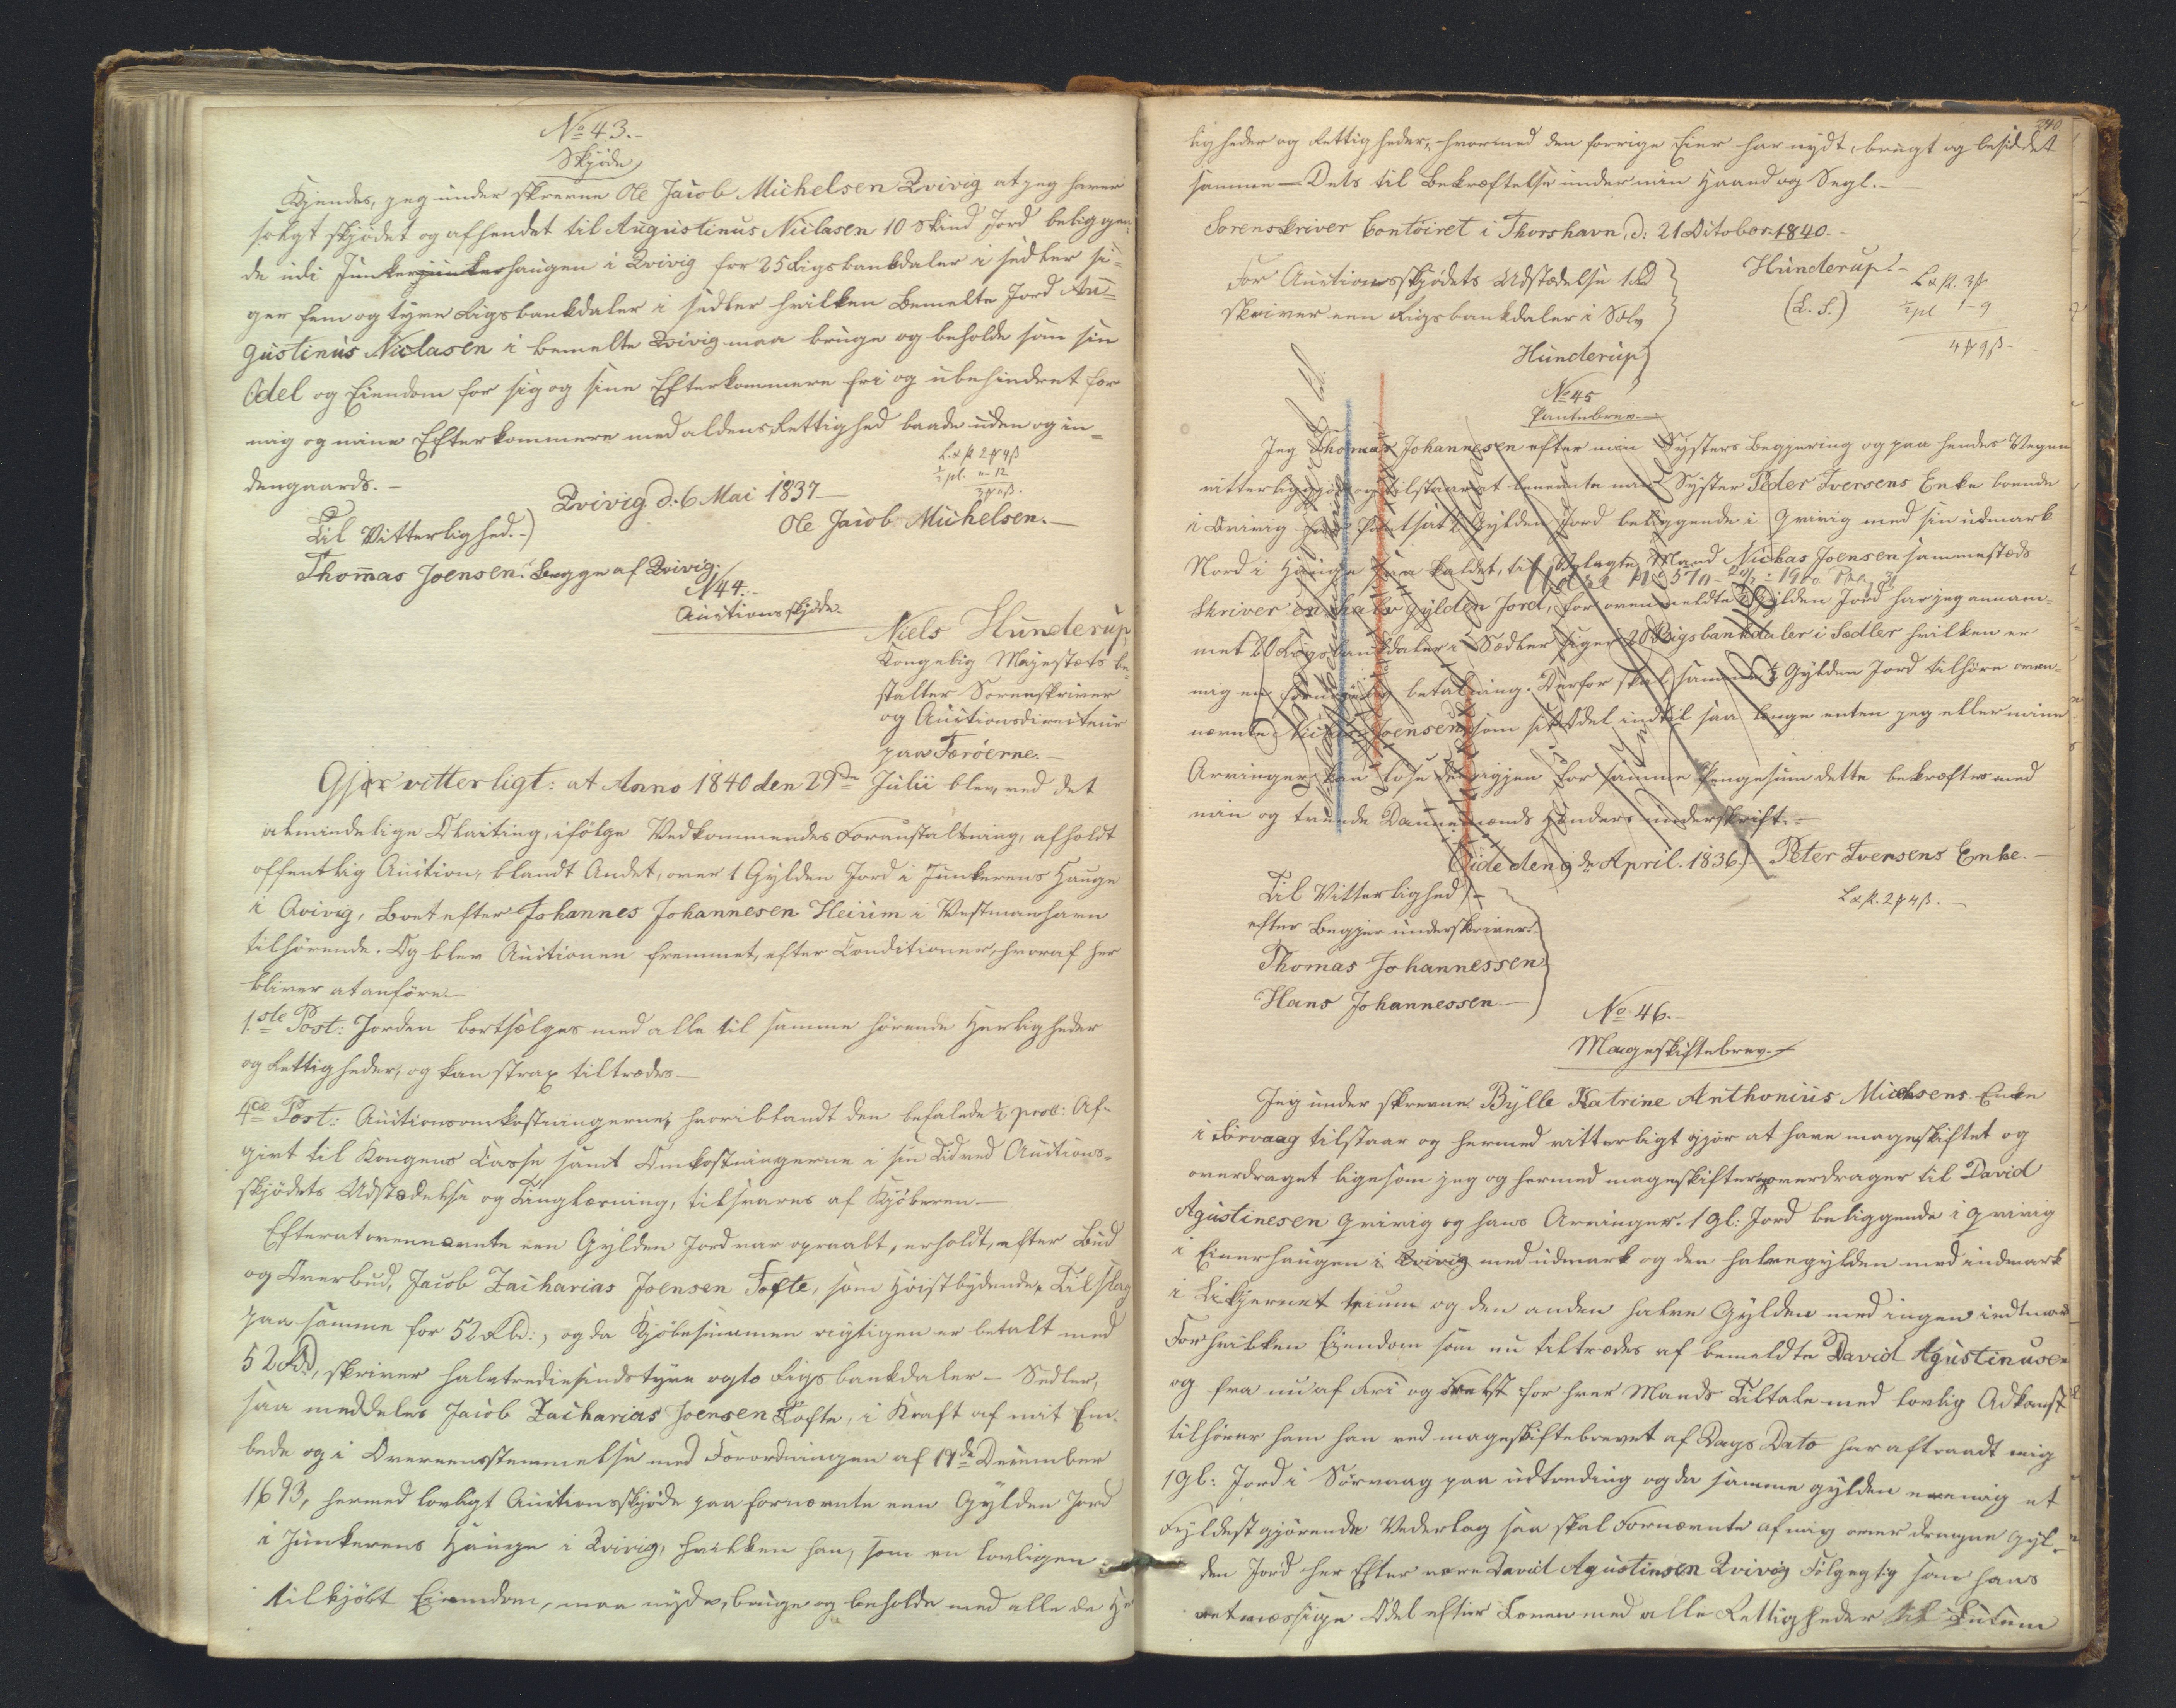 No 43.-
Skjöde
Kjendes, jeg underskrevne Ole Jacob Michelsen Qvivig at jeg haver
solgt skjödet og afhendet til Augustinus Niclasen 10 Skind Jord beliggen-
de udi Junkerjunkerhaugen i Qvivig for 25 Rigsbankdaler i sedler si-
ger fem og tyve Rigsbankdaler i sedler hvilken Bemelte Jord Au-
gustinus Niclasen i bemelte Qvivig maa bruge og beholde som sin
Odel og Eiendom for sig og sine Efterkommere fri og ubehindret for
mig og mine Efterkommere med aldens Rettighed baade uden og in-
dengaards.-
2 4ß
½ pl. " 12
Qvivig d. 6 Mai 1837
Til Vitterlighed.-)
Ole Jacob Michelsen.-
Thomas Joensen: Begge af Qvivig.
N 44.-
Auctionsskjöde.
Niels Hunderup,
Kongelig Majestæts be-
stalter Sorenskriver
og Auctionsdirecteur
paa Færöerne.-
Gjør vitterligt: at Anno 1840 den 29de Julii blev, ved det
almindelige Olaiting, ifölge Vedkommendes Foranstaltning, afholdt
offentlig Auction, blandt Andet, over 1 Gylden Jord i Junkerens Hauge
i Qvivig, Boet efter Johannes Johannesen Heium i Vestmanhavn
tilhörende. Og blev Auctionen fremmet, efter Conditioner, hvoraf her
bliver at anföre.-
1ste Post: Jorden bortsælges med alle til samme hörende Herligheder
og Rettigheder, og kan strax tiltrædes-
4de Post: Auctionsomkostningerne, hvoriblandt den befalede ½ proc: Af-
givt til Kongens Casse samt Omkostningerne i sin Tid ved Auctions-
skjödets Udstædelse og Tinglæsning, tilsvares af Kjöberen-
Efterat ovennævnte een Gylden Jord var opraabt, erholdt, efter Bud
og Overbud, Jacob Zacharias Joensen Tofte, som Höistbydende, Tilslag
paa samme for 52 Rbd:, og da Kjöbesummen rigtigen er betalt med
52 Rbd, skriver halvtrediesindstyve og to Rigsbankdaler - Sedler,
saa meddeles Jacob Zacharias Joensen Tofte, i Kraft af mit Em-
bede og i Overeensstemmelse med Forordningen af 19de December
1693, hermed lovligt Auctionsskjöde paa fornævnte een Gylden Jord
i Junkerens Hauge i Qvivig, hvilken han, som en lovligen
tilkjöbt Eiendom, maa nyde, bruge og beholde med alle de He
240
ligheder og Rettigheder, hvormed den forrige Eier har nydt, brugt og besiddet
samme - Dets til Bekræftelse under min Haand og Segl.-
Sorenskriver Contoiret i Thorshavn, d: 21 October 1840.-
For Auctionsskjödets Udstædelse 1 Rd
Hunderup.-
skriver een Rigsbankdaler i Sølv
(L. S.)
½ pl 1-9
Hunderup
4 9ß-
No 45
Pantebrev.-
Jeg Thomas Johannesen efter min Systers Begjering og paa hendes Vegne
vitterliggjör og tilstaar at benevnte min Syster Peder Iversens Enke boende
i Qvivig har pantsat ½ Gylden Jord beliggende i Qvivig med sin udmark
Nord i Hauge saa kaldet, til Velagte Mand Nichas Joensen sammestæds
skriver en halv Gylden Jord, for ovenmeldte ½ Gylden Jord har jeg annam-
met 20 Rigsbankdaler i Sedler siger 20 Rigsbankdaler i Sedler hvilken er
mig en betalning. Derfor skal samme ½ Gylden Jord tilhöre oven-
nævnte Nichas Joensen som sit Odel indtil saa længe enten jeg eller mine
Arvinger kan löse den igjen for samme Pengesum dette bekræftes med
min og tvende Dannemænds Hænders underskrift.-
Eide den 9de April. 1836.) Peter Iversens Enke.-
Til Vitterlighed)-
2 4ß.-
efter Begjer underskriver
Thomas Johannessen
Hans Johannessen-
No 46.-
Mageskiftebrev.-
Jeg underskrevne Bylle Katrine Anthonius Michsens Enke
i Sörvaag tilstaar og hermed vitterligt gjör at have mageskiftet og
overdraget ligesom jeg og hermed mageskifter og overdrager til David
Agustinesen Qvivig og hans Arvinger. 1 Gl: Jord beliggende i Qvivig
i Einerhaugen i Qvivig med udmark og den halvegylden med indmark
i og den anden halve Gylden med ingen indmark
For hvilken Eiendom som nu tiltrædes af bemeldte David Agustinusen
og fra nu af fri og frelst for hver Mands Tiltale med lovlig Adkomst
tilhörer ham han ved mageskiftebrevet af Dags Dato har aftraadt mig
1 Gl: Jord i Sörvaag paa og da samme gylden er mig et
Fyldestgjörende Vederlag saa skal Fornævnte af mig over dragne Gyl-
den Jord her Efter være David Agustinsen Qvivig Fölgagtig som hans
retmæssige Odel efter Loven med alle Rettigheder til Lutum